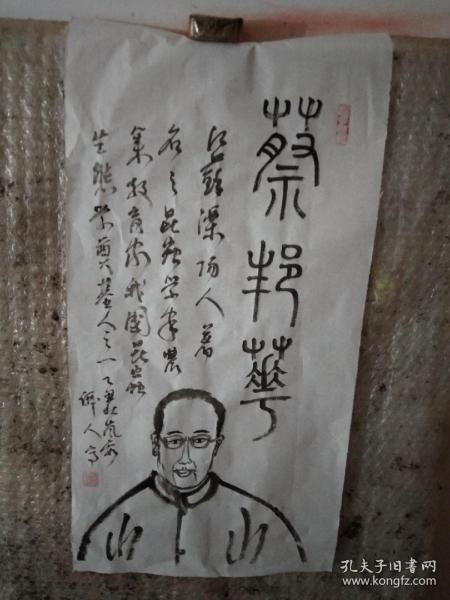 蔡邦華
江蘇溧陽人著
名之昆虫学家農
業教育家我國昆虫
生態学奠基人之一乙丑
人写
孔夫子旧书网
www.kongfz.com